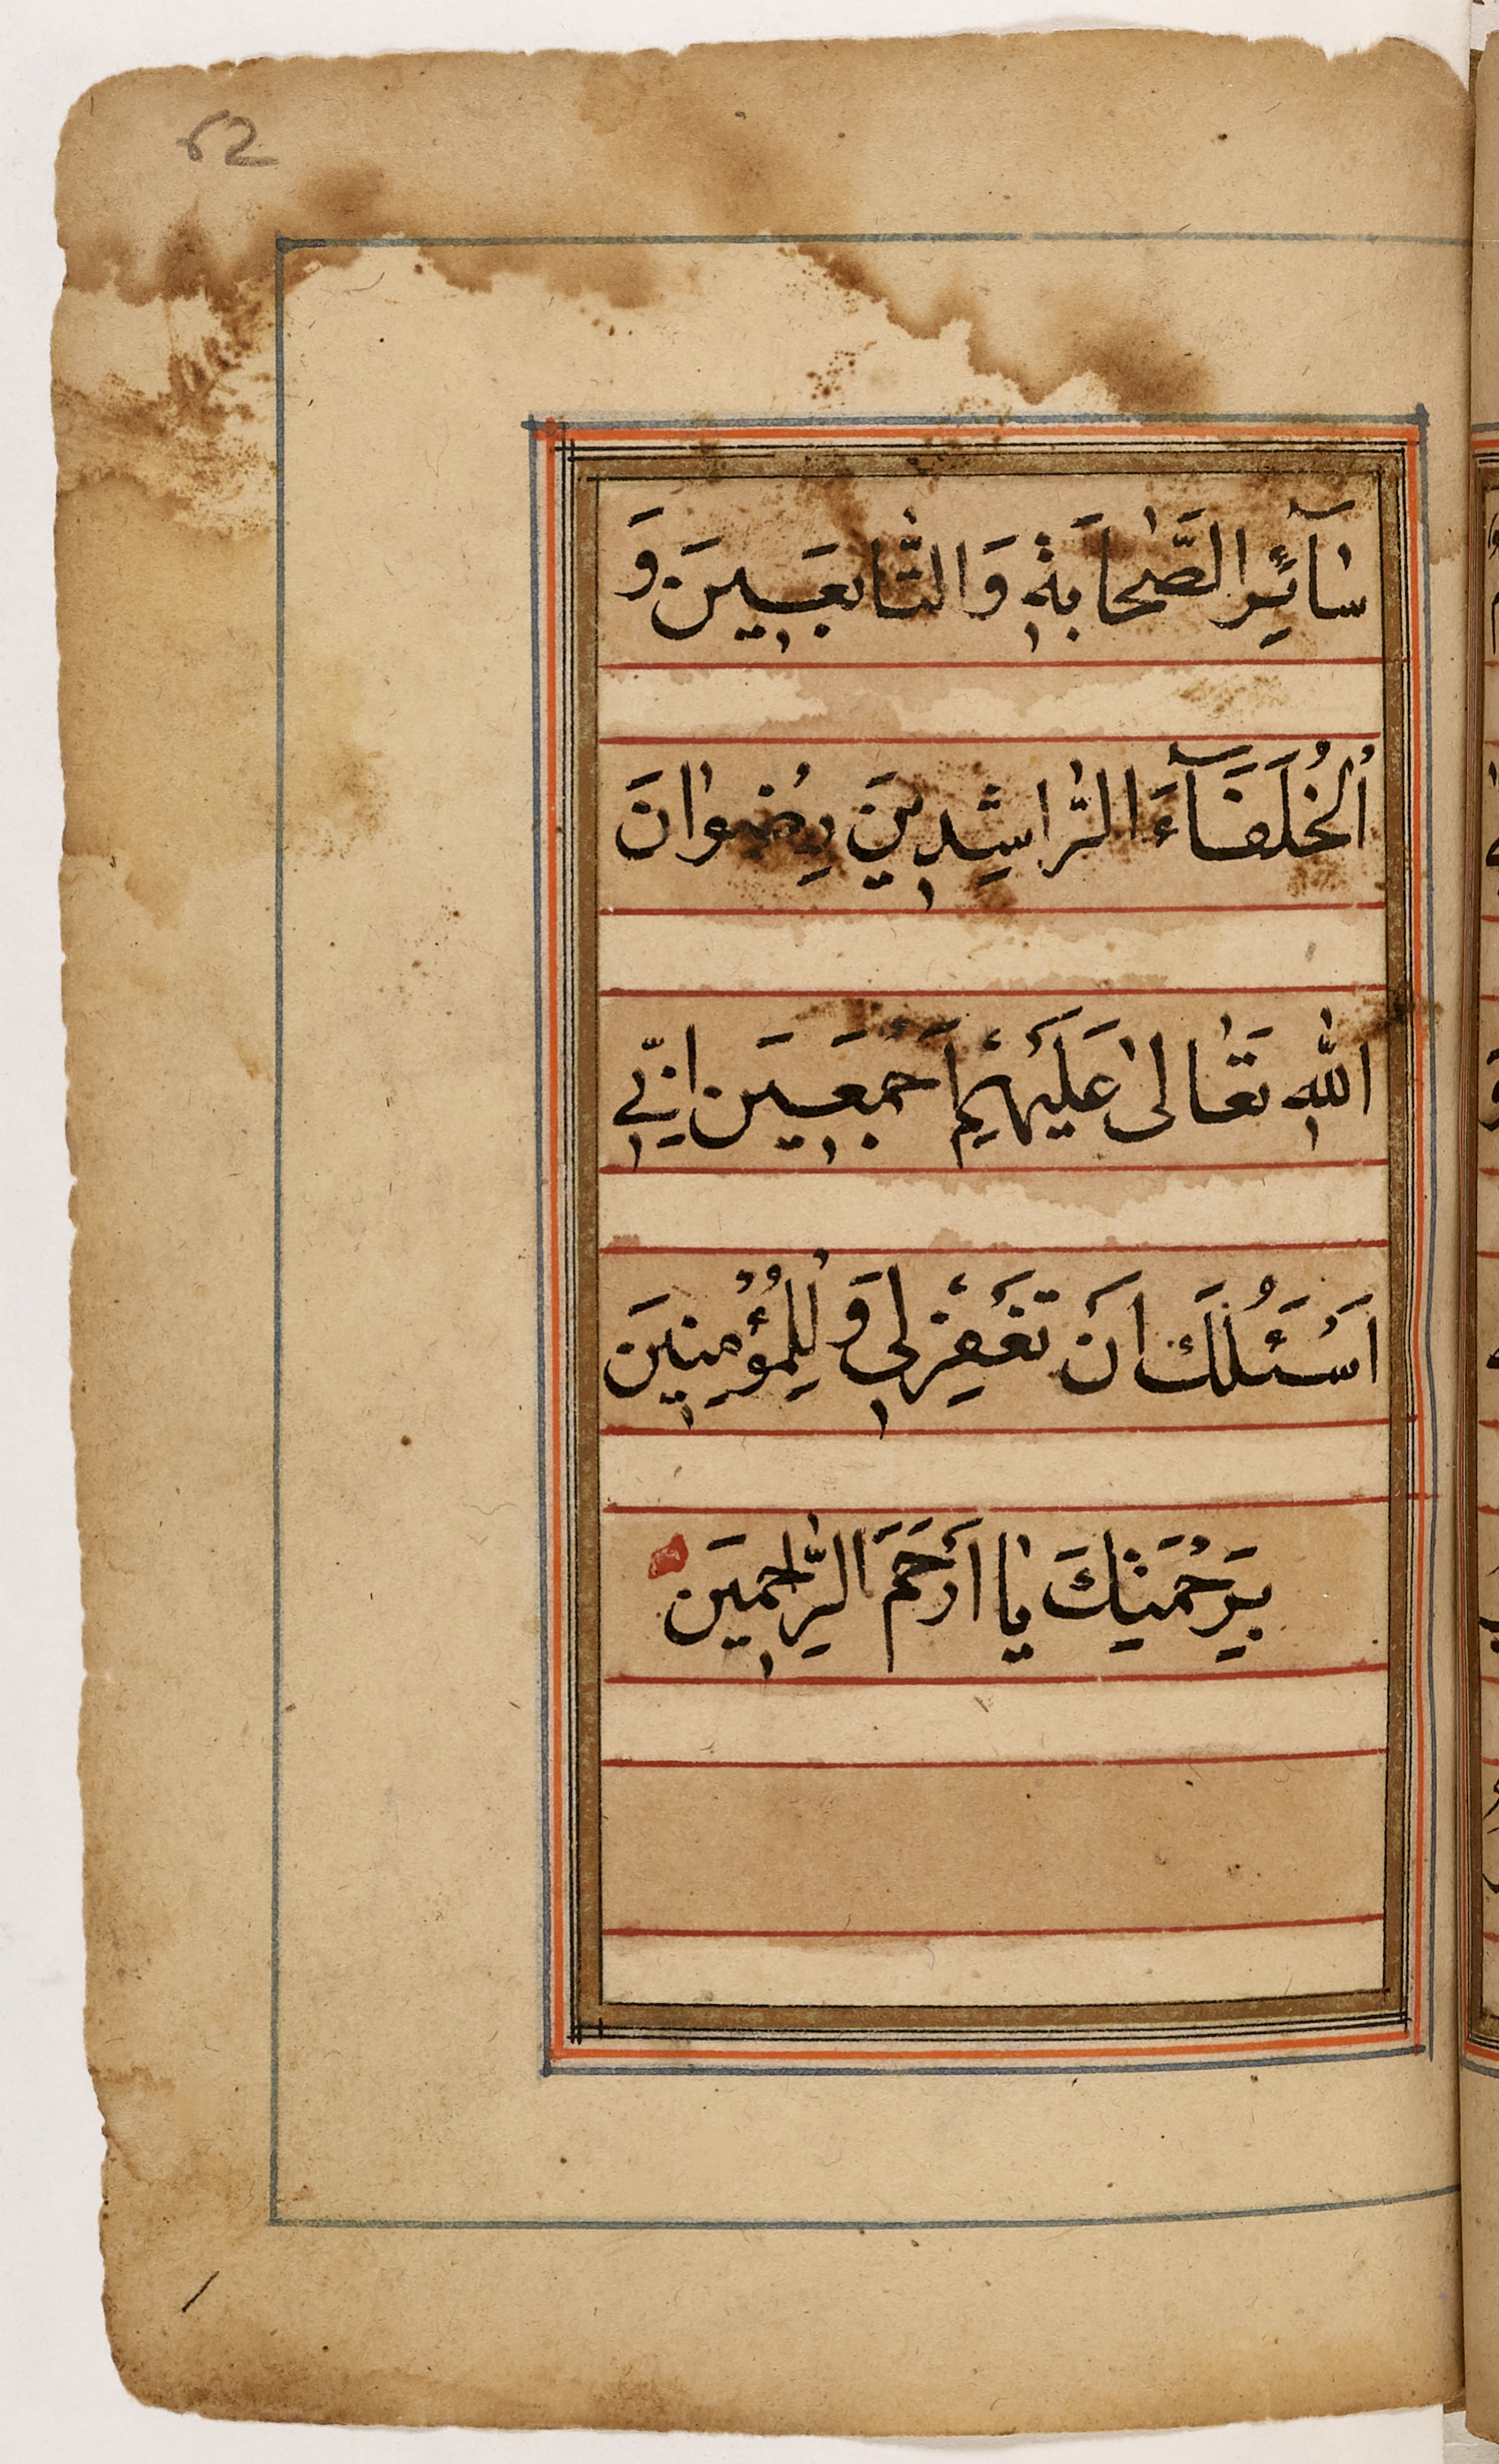 62
سَآئِرِ الصَّحَابَةِ وَالتَّابِعَيِنَ وَ
اُلخُلَفَآءَ الرَّاشِدِينَ رِضْوَانَ
اللهِ تَعَالىٰ عَلَيْهِمْ اَجْمَعَيِن اِنّىِ
اَسْئَلُكَ اَنْ تَغْفِرْلىِ وَ لِلْمُؤْمِنِينَ
بِرَحْمَتِكَ يَا اَرْحَمَ الرَّاحِمِيَن